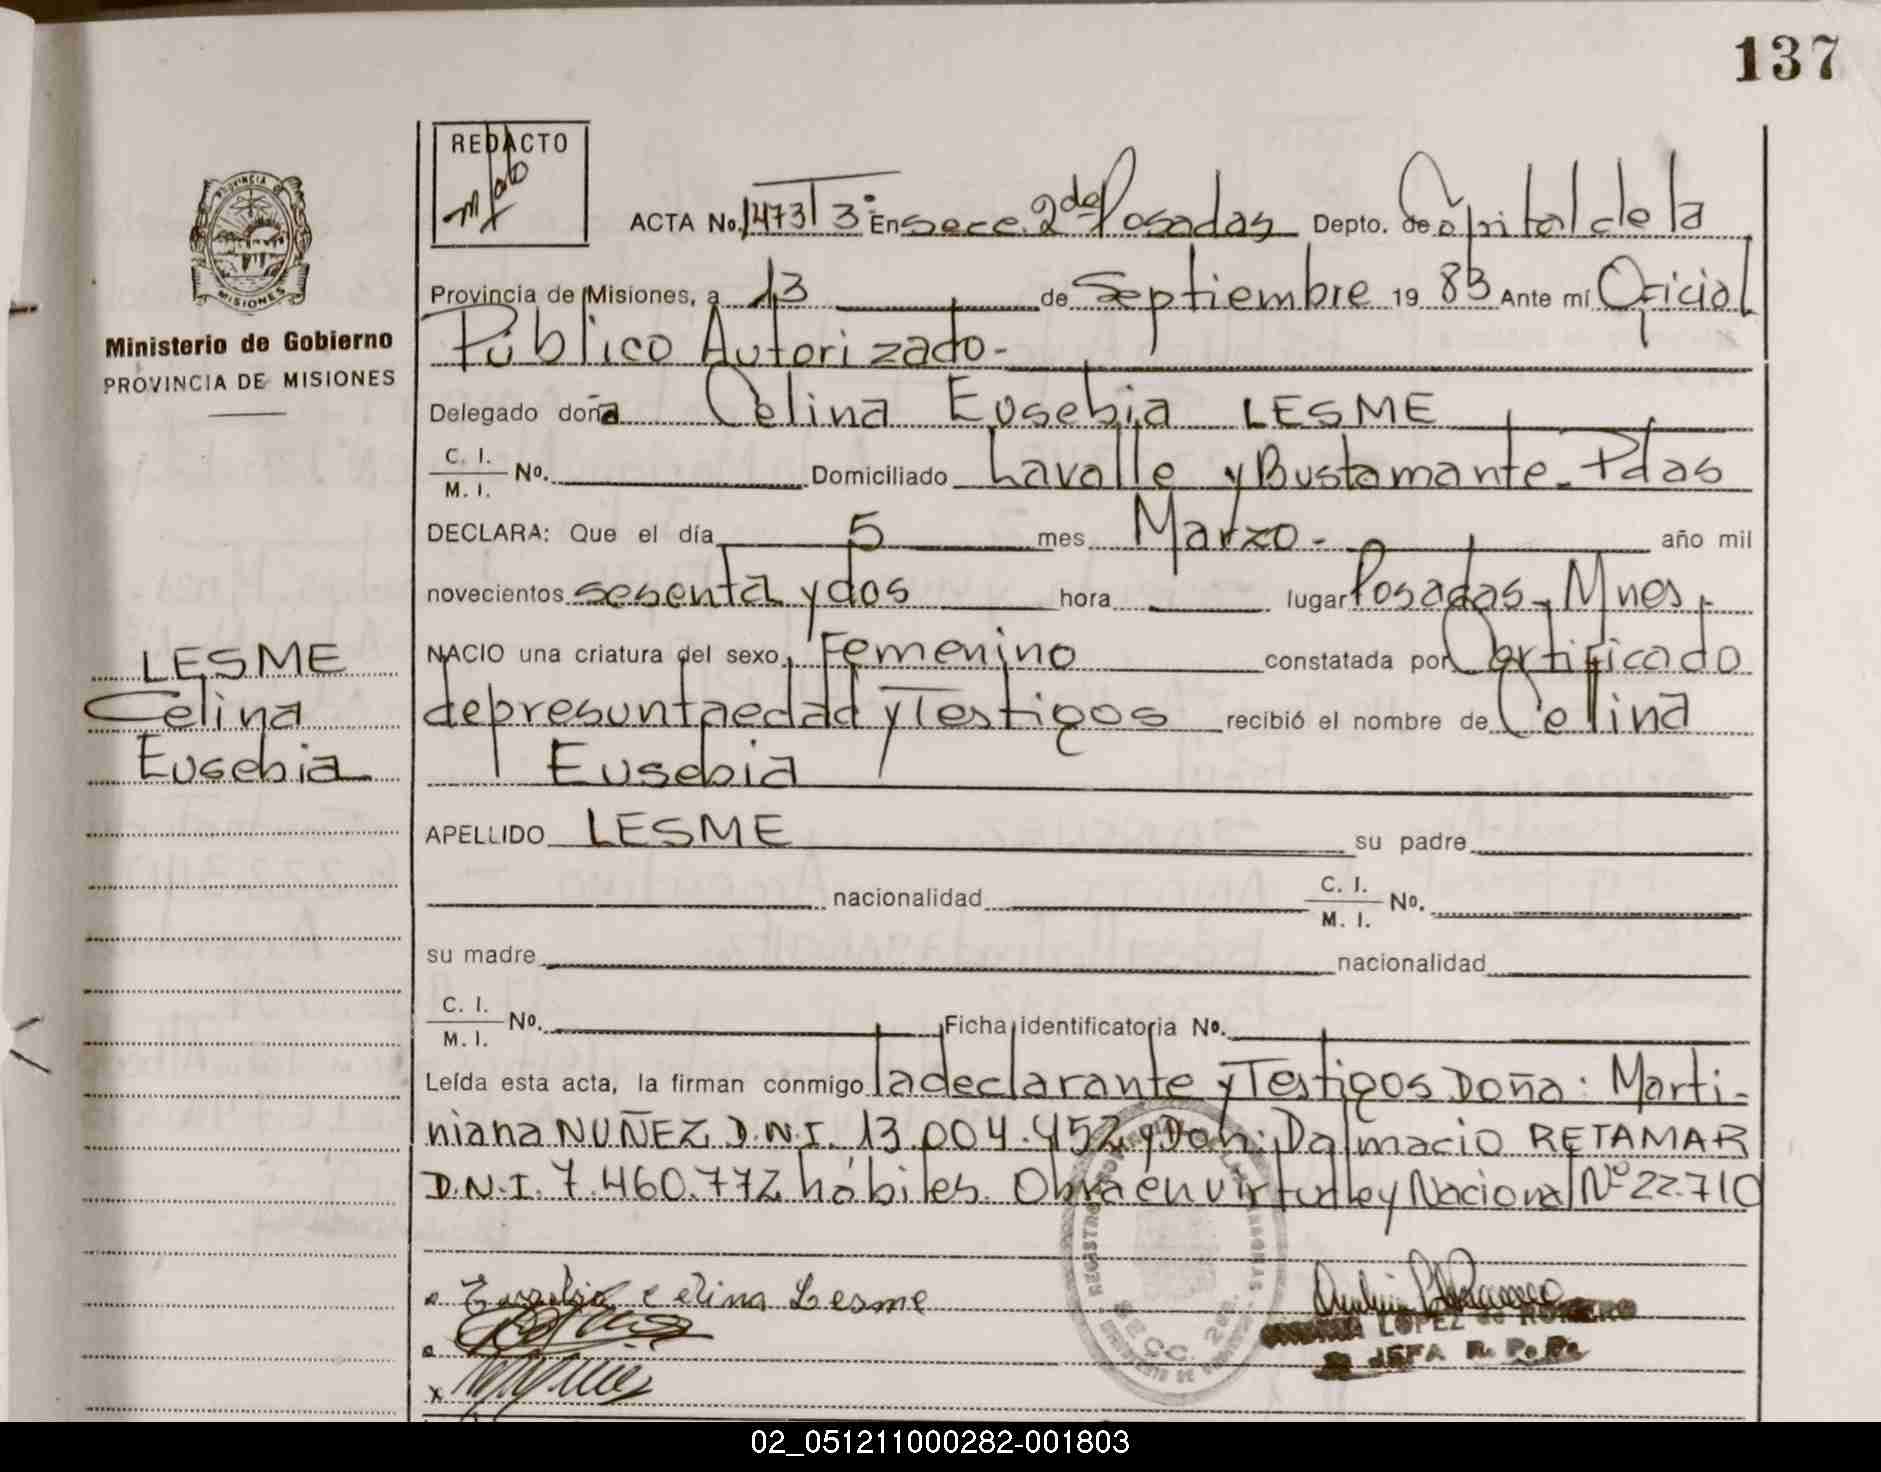 137
REDACTO
ACTA No. 1473 T 3º En Secc. 2da Posadas Depto. de Capital de la
Provincia de Misiones, a 13 de Septiembre 19 83 Ante mí Oficial
Público Autorizado-
PROVINCIA DE
MISIONES
Ministerio de Gobierno
PROVINCIA DE MISIONES
Delegado doña Celina Eusebia LESME
C. I.
M. I. No. Domiciliado Lavalle y Bustamante - Pdas
DECLARA: Que el día 5 mes Marzo - año mil
novecientos sesenta y dos hora lugar Posadas, Mnes,
LESME
Celina
Eusebia
NACIO una criatura del sexo Femenino constatada por Certificado
de presunta edad y Testigos recibió el nombre de Celina
Eusebia
APELLIDO LESME su padre
nacionalidad C. I.
M. I. No.
su madre nacionalidad
C. I.
M. I. No. Ficha identificatoria No.
Leída esta acta, la firman conmigo la declarante y Testigos Doña: Marti-
niana NUÑEZ D.N.I. 13.004.452 y Don: Dalmacio RETAMAR
D.N.I. 7.460.772 hábiles. Obra en virtud ley Nacional Nº 22.710
Celina Lesme
SECC. 2da.
LOPEZ de ROMERO
JEFA R. P. P.
02_051211000282-001803